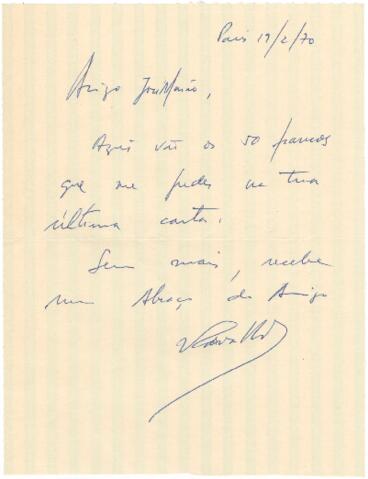 Paris 19/2/70
Amigo José Mário,
Aqui vão os 50 francos
que me pedes na tua
última carta.
Sem mais, recebe
um Abraço do Amigo